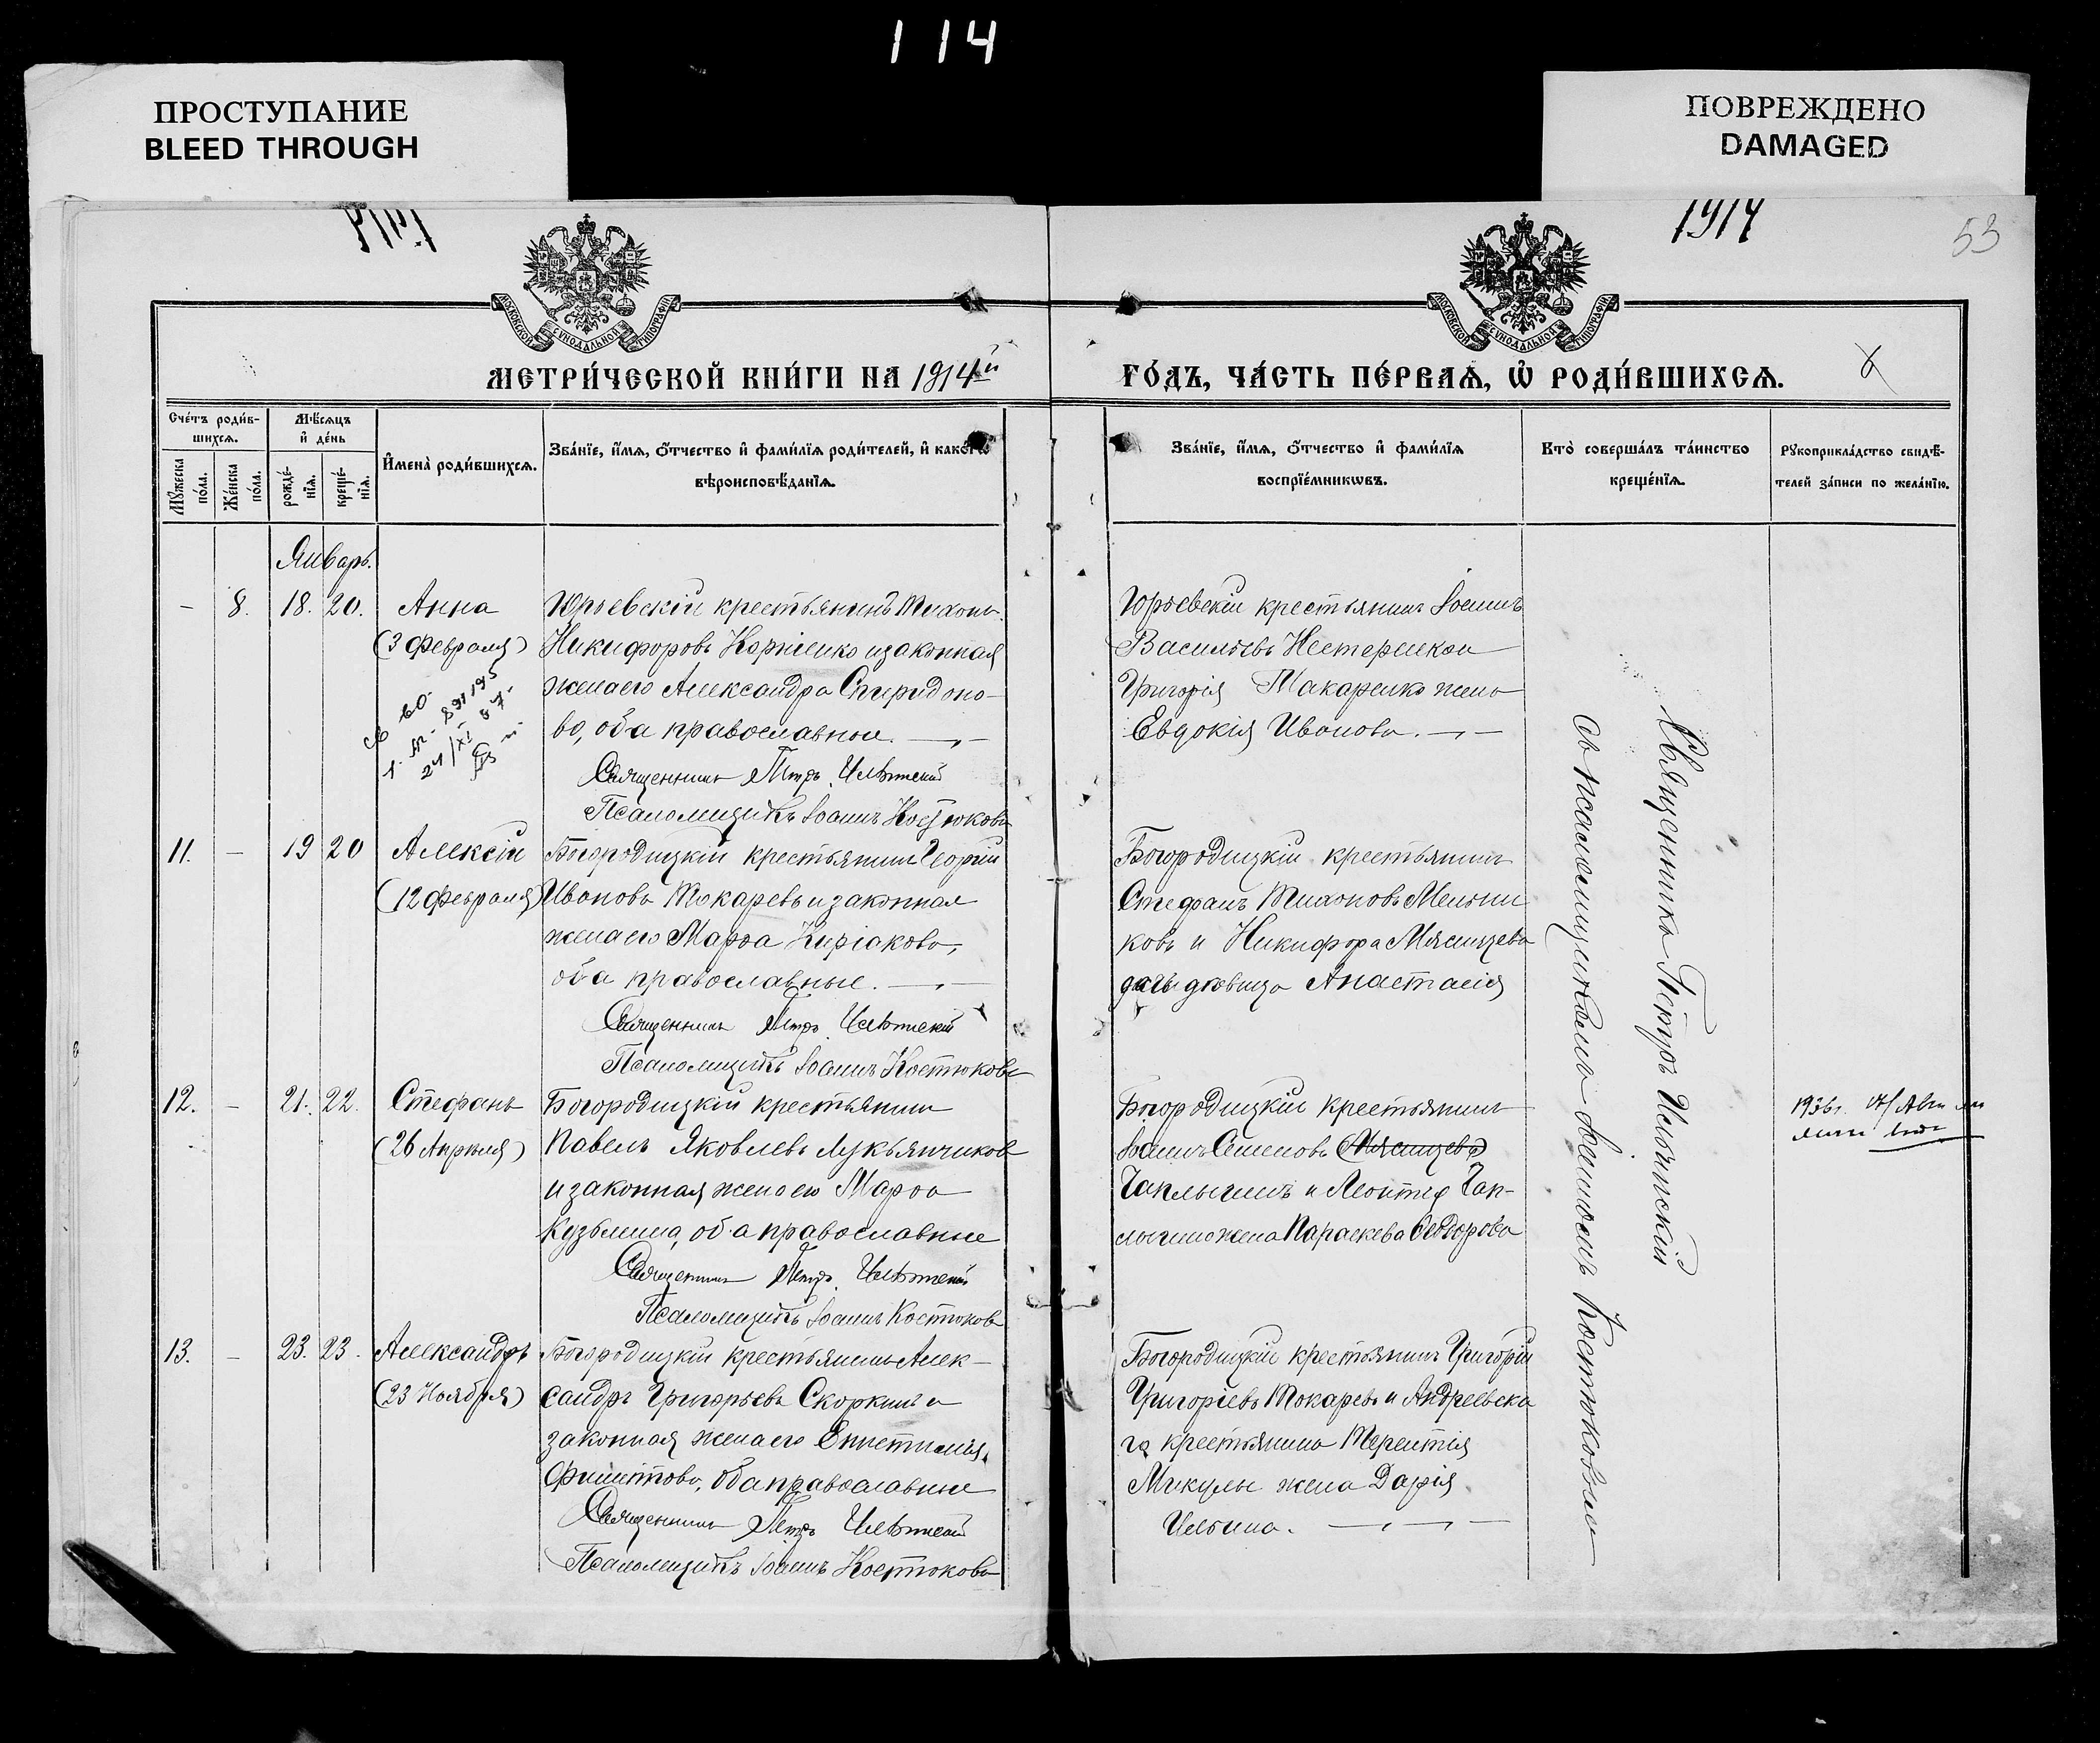 114
ПРОСТУПАНИЕ
BLEED THROUGH
ПОВРЕЖДЕНО
DAMAGED
1914
53
МОСКОВСКОЙ СѴНОДАЛЬНОЙ ТИПОГРАФІИ
МОСКОВСКОЙ СѴНОДАЛЬНОЙ ТИПОГРАФІИ
МЕТРИ́ЧЕСКОЙ КНИ́ГИ НА 1914й
ГО́ДЪ, ЧА́СТЬ ПЕ́РВАѦ, Ѡ҆ РОДИ́ВШИХСѦ.
Сче́тъ роди́в-
шихсѧ.
Мꙋ́жеска по́ла.
Же́нска по́ла.
Мѣ́сѧцъ
и҆ де́нь
рожде́-
нїѧ.
креще́-
нїѧ.
И҆мена̀ роди́вшихсѧ.
Зва́нїе, и҆́мѧ, ѻ҆́тчество и҆ фами́лїѧ роди́телей, и҆ како́гѡ
вѣроисповѣ́данїѧ.
Зва́нїе, и҆́мѧ, ѻ҆́тчество и҆ фами́лїѧ
воспрїе́мникѡвъ.
Кто̀ соверша́лъ та́инство
креще́нїѧ.
Рꙋкоприкла́дство свидѣ́-
телей за́писи по жела́нїю.
Январь.
- 8. 18. 20. Анна
(3 февраля)
Юрьевскій крестьянинъ Тихонъ
Никифоровъ Корніенко и законная
жена его Александра Спиридоно-
ва, оба православные.
Священникъ Петръ
Псаломщикъ Іоаннъ Костюковъ
Юрьевскій крестьянинъ Іоаннъ
Васильевъ Нестеренко и
Григорія Макаренко жена
Евдокія Иванова.
11. - 19 20 Алексій
(12 февраля)
Богородицкій крестьянинъ Георгій
Ивановъ Токаревъ и законная
жена его Марѳа Киріакова,
оба православные.
Священникъ Петръ
Псаломщикъ Іоаннъ Костюковъ
Богородицкій крестьянинъ
Стефанъ Тихоновъ Мельни
ковъ и Никифора Мясищева
дочь девица Анастасія
12. - 21. 22. Стефанъ
(26 Апреля)
Богородицкій крестьянинъ
Павелъ Яковлевъ Лукьянчиковъ
и законная жена его Марѳа
Кузьмина, оба православные
Священникъ Петръ
Псаломщикъ Іоаннъ Костюковъ
Богородицкій крестьянинъ
Іоаннъ Семеновъ (Мясищевъ)
Чаплыгинъ и Леонтія Чап-
лыгина жена Параскева Ѳеодорова
1936г.
13. - 23. 23. Александръ
(23 Ноября)
Богородицкій крестьянинъ Алек-
сандръ Григорьевъ Скоркинъ и
законная жена его Епистимія
Филиппова, оба православные
Священникъ Петръ
Псаломщикъ Іоаннъ Костюковъ
Богородицкій крестьянинъ Григорій
Григоріевъ Токаревъ и Андреевска
го крестьянина Терентія
Микулы жена Дарія
Ильина.
Священникъ Петръ
съ псаломщикомъ Іоанномъ Костюковымъ